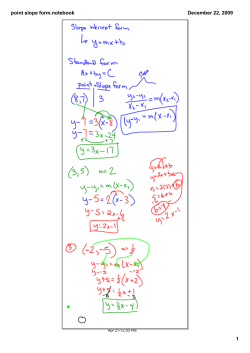 point slope form.notebook
December 22, 2009
Slope intercept form
↳ y=mx+b
Standard form
Ax+by=C
point-slope form
(8,7) | 3
y2-y1 / x2-x1 = m(x2-x1)
(y-y1 = m(x-x1)
y-7=3(x-8)
y-7=3x-24
y=3x-17
(3,5) m=2
y-y1=m(x-x1)
y-5=2(x-3)
y-5=2x-6
y=2x-1
y=2x-1
(-2,-5) m=½
y-y1=m(x-x1)
y+5=½(x+2)
y+5=½x+1
y=½x-4
1